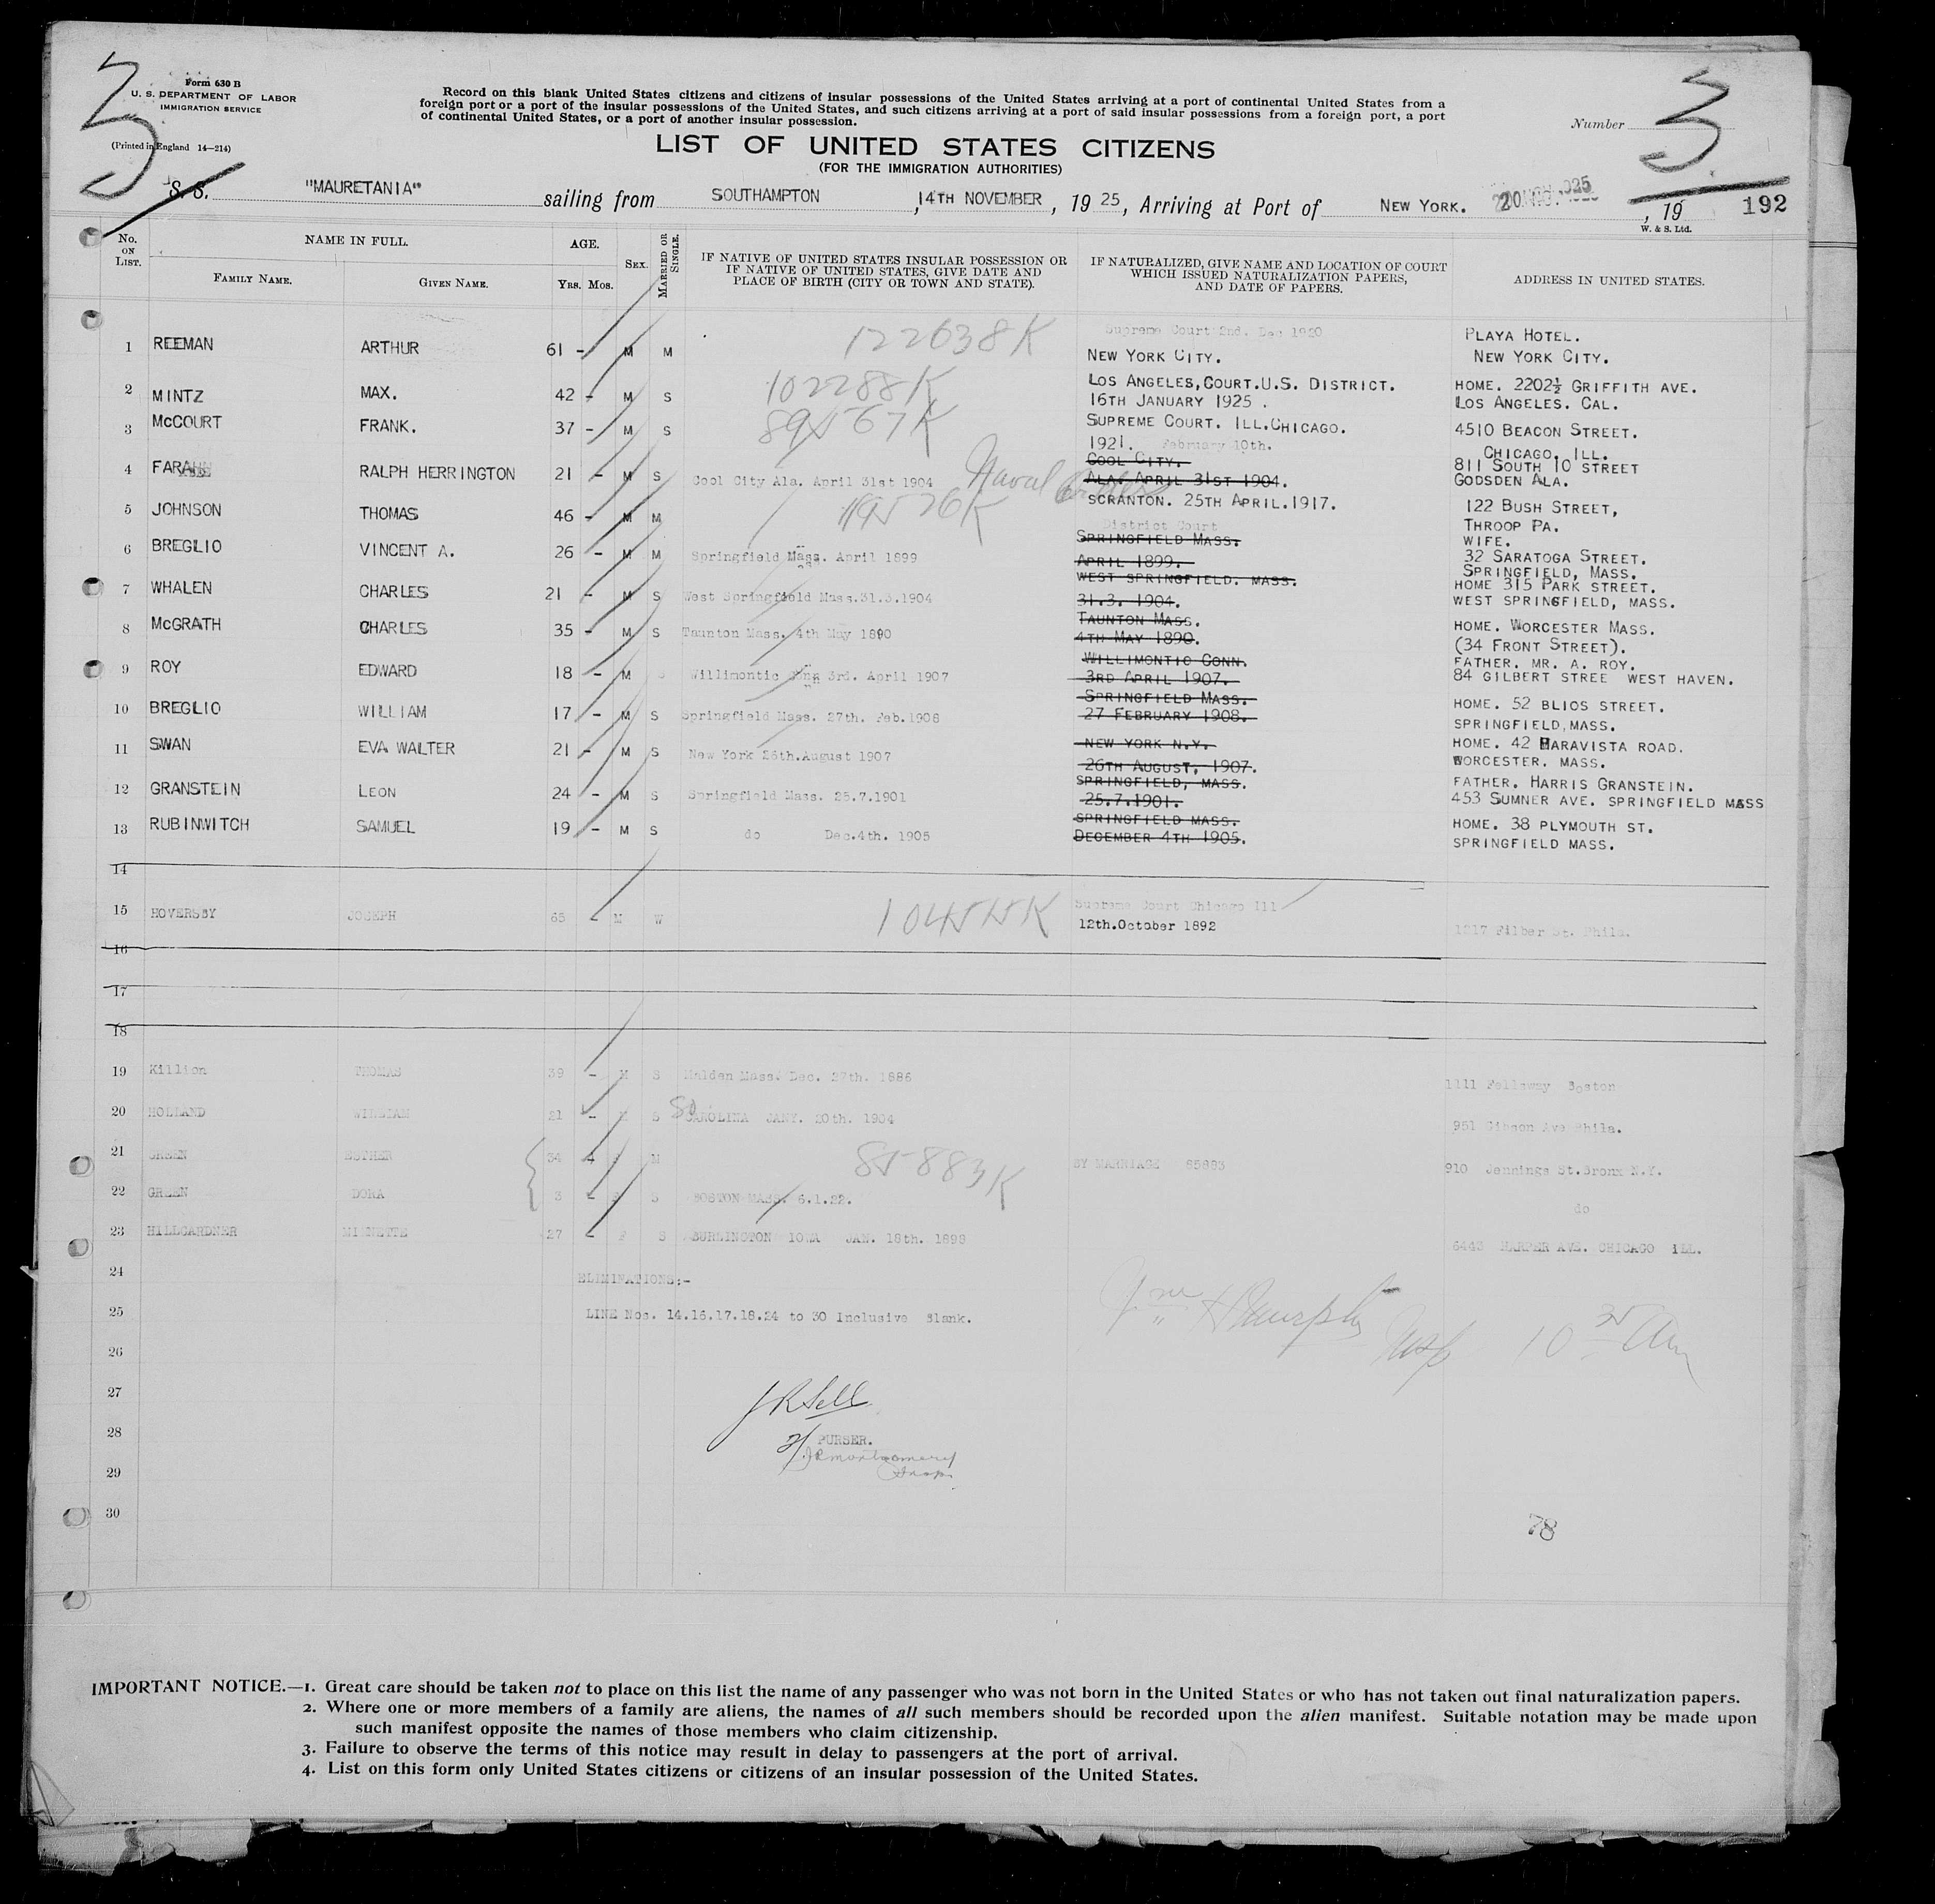 3
Form 630 B
U. S. DEPARTMENT OF LABOR
IMMIGRATION SERVICE
(Printed in England 14—214)
Record on this blank United States citizens and citizens of insular possessions of the United States arriving at a port of continental United States from a
foreign port or a port of the insular possessions of the United States, and such citizens arriving at a port of said insular possessions from a foreign port, a port
of continental United States, or a port of another insular possession.
LIST OF UNITED STATES CITIZENS
(FOR THE IMMIGRATION AUTHORITIES)
Number 3
S. S. "MAURETANIA" sailing from SOUTHAMPTON, 14TH NOVEMBER, 1925, Arriving at Port of NEW YORK. , 19 192
W. & S. Ltd.
No. ON LIST. NAME IN FULL. AGE. SEX. MARRIED OR SINGLE. IF NATIVE OF UNITED STATES INSULAR POSSESSION OR IF NATIVE OF UNITED STATES, GIVE DATE AND PLACE OF BIRTH (CITY OR TOWN AND STATE). IF NATURALIZED, GIVE NAME AND LOCATION OF COURT WHICH ISSUED NATURALIZATION PAPERS, AND DATE OF PAPERS. ADDRESS IN UNITED STATES.
FAMILY NAME. GIVEN NAME. YRS. MOS.
1 REEMAN ARTHUR 61 - M M 122638K Supreme Court 2nd. Dec 1920 PLAYA HOTEL.
NEW YORK CITY. NEW YORK CITY.
2 MINTZ MAX. 42 - M S 102288K LOS ANGELES, COURT.U.S. DISTRICT. HOME. 2202½ GRIFFITH AVE.
16TH JANUARY 1925 . LOS ANGELES. CAL.
3 McCOURT FRANK. 37 - M S 89567K SUPREME COURT. ILL.CHICAGO. 4510 BEACON STREET.
1921. February 10th. CHICAGO, ILL.
4 FARAH RALPH HERRINGTON 21 - M S Cool City Ala. April 31st 1904 Naval COOL CITY. 811 SOUTH 10 STREET
ALA. APRIL 31ST 1904. GODSDEN ALA.
5 JOHNSON THOMAS 46 - M M 119526K SCRANTON. 25TH APRIL.1917. 122 BUSH STREET,
District Court THROOP PA.
6 BREGLIO VINCENT A. 26 - M M Springfield Mass. April 1899 SPRINGFIELD MASS. WIFE.
APRIL 1899. 32 SARATOGA STREET.
SPRINGFIELD, MASS.
7 WHALEN CHARLES 21 - M S West Springfield Mass.31.3.1904 WEST SPRINGFIELD. MASS. HOME 315 PARK STREET.
31.3. 1904. WEST SPRINGFIELD, MASS.
8 McGRATH CHARLES 35 - M S Taunton Mass. 4th May 1890 TAUNTON MASS. HOME. WORCESTER MASS.
4TH MAY 1890. (34 FRONT STREET).
9 ROY EDWARD 18 - M S Willimontic Conn 3rd. April 1907 WILLIMONTIC CONN. FATHER. MR. A. ROY.
3RD APRIL 1907. 84 GILBERT STREE WEST HAVEN.
10 BREGLIO WILLIAM 17 - M S Springfield Mass. 27th. Feb.1908 SPRINGFIELD MASS. HOME. 52 BLIOS STREET.
27 FEBRUARY 1908. SPRINGFIELD, MASS.
11 SWAN EVA WALTER 21 - M S New York 26th.August 1907 NEW YORK N.Y. HOME. 42 HARAVISTA ROAD.
26TH AUGUST, 1907. WORCESTER. MASS.
12 GRANSTEIN LEON 24 - M S Springfield Mass. 25.7.1901 SPRINGFIELD, MASS. FATHER. HARRIS GRANSTEIN.
25.7.1901. 453 SUMNER AVE. SPRINGFIELD MASS
13 RUBINWITCH SAMUEL 19 - M S do Dec.4th. 1905 SPRINGFIELD MASS. HOME. 38 PLYMOUTH ST.
DECEMBER 4TH 1905. SPRINGFIELD MASS.
14
15 HOVERSBY JOSEPH 65 - M W 104545K Supreme Court Chicago Ill
12th.October 1892 1217 Filber St. Phila.
16
17
18
19 Killion THOMAS 39 - M S Malden Mass. Dec. 27th. 1886 1111 Fellsway Boston
20 HOLLAND WILLIAM 21 - M S So CAROLINA JANY. 20th. 1904 951 Gibson Ave Phila.
21 GREEN ESTHER 34 - F M 85883K BY MARRIAGE 85883 910 Jennings St.Bronx N.Y.
22 GREEN DORA 3 - F S BOSTON MASS. 6.1.22. do
23 HILLGARDNER MINNETTE 27 - F S BURLINGTON IOWA JAN. 18th. 1898 6443 HARPER AVE. CHICAGO ILL.
24 ELIMINATIONS:-
25 LINE Nos. 14.16.17.18.24 to 30 Inclusive Blank.
26 10 35 Am
27 J R Sell
28 PURSER.
29
30 78
IMPORTANT NOTICE.—1. Great care should be taken not to place on this list the name of any passenger who was not born in the United States or who has not taken out final naturalization papers.
2. Where one or more members of a family are aliens, the names of all such members should be recorded upon the alien manifest. Suitable notation may be made upon
such manifest opposite the names of those members who claim citizenship.
3. Failure to observe the terms of this notice may result in delay to passengers at the port of arrival.
4. List on this form only United States citizens or citizens of an insular possession of the United States.